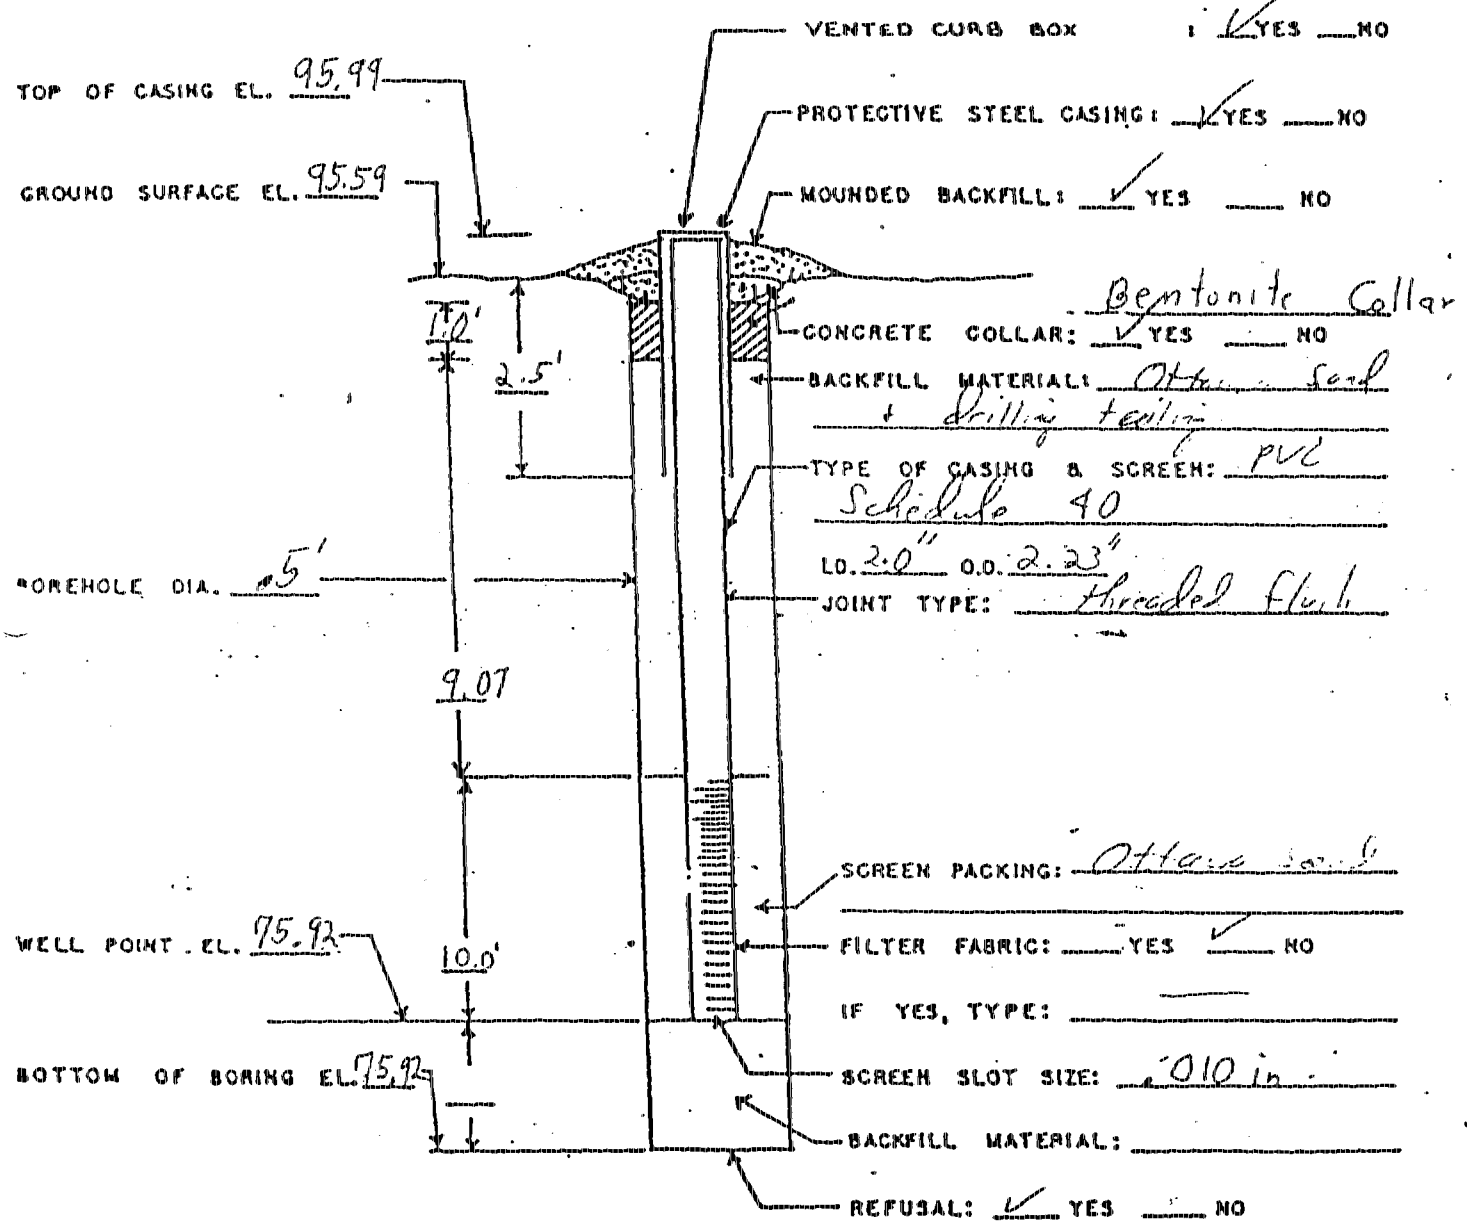 VENTED CURB BOX : ✓ YES NO
TOP OF CASING EL. 95.99
PROTECTIVE STEEL CASING: ✓ YES NO
GROUND SURFACE EL. 95.59
MOUNDED BACKFILL: ✓ YES NO
Bentonite Collar
1.0'
CONCRETE COLLAR: ✓ YES NO
2.5'
BACKFILL MATERIAL: Sand
+ drilling
TYPE OF CASING & SCREEN: PVC
Schedule 40
BOREHOLE DIA. .5'
I.D. 2.0" O.D. 2.23"
JOINT TYPE: threaded flush
9.07
SCREEN PACKING: Ottawa sand
WELL POINT EL. 75.92
10.0'
FILTER FABRIC: YES ✓ NO
IF YES, TYPE: —
BOTTOM OF BORING EL. 75.92
SCREEN SLOT SIZE: .010 in.
BACKFILL MATERIAL:
REFUSAL: ✓ YES NO